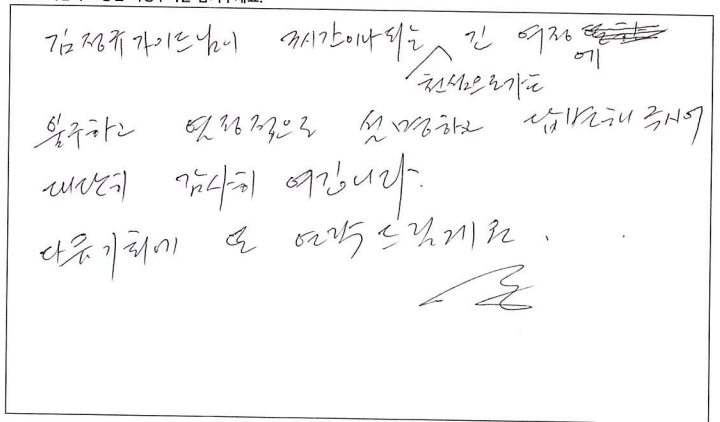 김정규가이드님이 3시간이나되는 긴 여정
에
천성으로가는
완주하고 열정적으로 설명하고 답변해 주시어
대단히 감사히 여깁니다.
다음기회에 또 연락드릴게요.